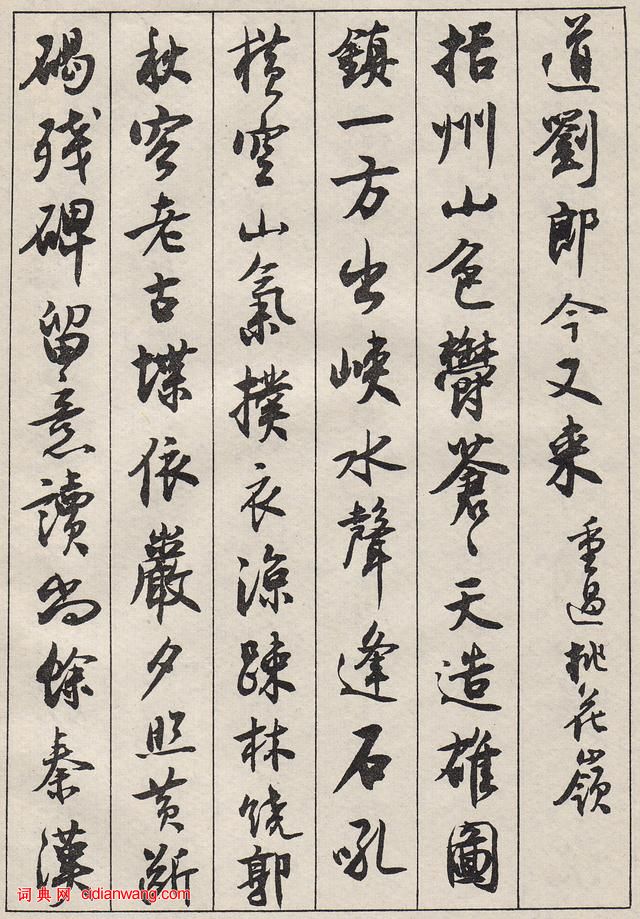 道劉郎今又来 重過桃花嶺
括州山色鬱蒼〻天造雄圖
鎮一方出峽水聲逢石吼
横空山氣撲衣涼踈林饒郭
秋容老古堞依巖夕照黄斷
碣残碑留意讀尚餘秦漢
词典网 cidianwang.com